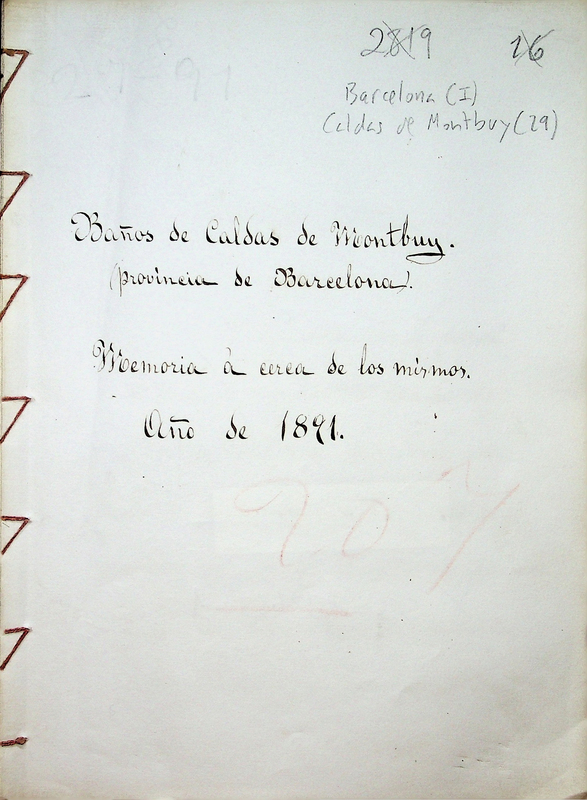 2819 16
Barcelona (I)
Caldas de Montbuy (29)
Baños de Caldas de Montbuy.
(provincia de Barcelona).
Memoria à cerca de los mismos.
Año de 1891.